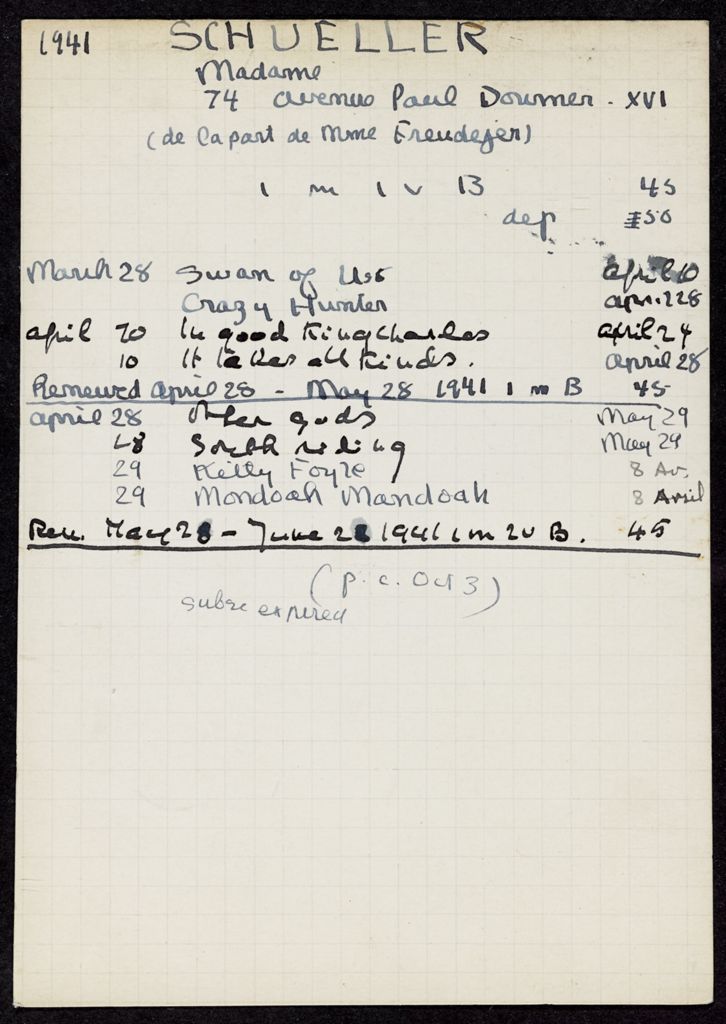 1941 SCHUELLER
Madame
74 avenue Paul Doumer. XVI
(de la part de Mme Freudejer)
1 m 1 v B 45
dep 50
March 28 Swan of Usk april 10
Crazy Hunter april 28
april 10 In good King Charles april 24
10 It takes all kinds. april 28
Renewed april 28 - May 28 1941 1 m B 45
april 28 Other gods May 29
28 South riding May 29
29 Kitty Foyle 8 Av.
29 Mondoah Mandoah 8 Avril
Ren. May 28 - June 28 1941 1 m 2v B. 45
(p.c. Oct 3)
subsc expired